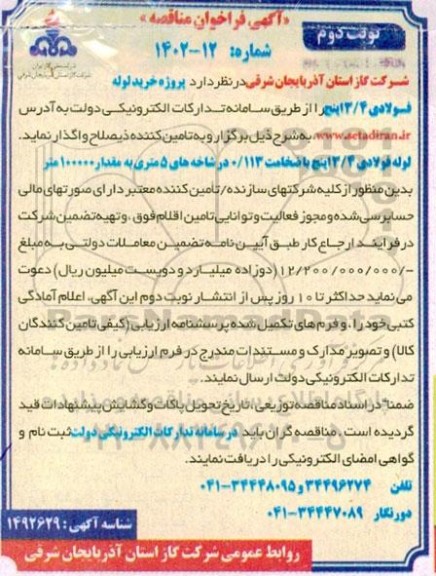 «آگهی فراخوان مناقصه»
نوبت دوم
شماره: ۱۲-۱۴۰۲
شرکت گاز استان آذربایجان شرقی
شرکت گاز استان آذربایجان شرقی در نظر دارد پروژه خرید لوله
فسولادی ۳/۴ اینچ را از طریق سامانه تدارکات الکترونیکی دولت به آدرس
www.setadiran.ir، به شرح ذیل برگزار و به تامین کننده ذیصلاح واگذار نماید.
لوله فولادی ۳/۴ اینچ با ضخامت ۰/۱۱۳ در شاخه های ۵ متری به مقدار ۱۰۰۰۰۰ متر
بدین منظور از کلیه شرکتهای سازنده/تأمین کننده معتبر دارای صورتهای مالی
حسابرسی شده و مجوز فعالیت و توانایی تامین اقلام فوق، و تهیه تضمین شرکت
در فرایند ارجاع کار طبق آیین نامه تضمین معاملات دولتی به مبلغ
۱۲/۲۰۰/۰۰۰/۰۰۰/- (دوازده میلیارد و دویست میلیون ریال) دعوت
می نماید حداکثر تا ۱۰ روز پس از انتشار نوبت دوم این آگهی، اعلام آمادگی
کتبی خود را، و فرم های تکمیل شده پرسشنامه ارزیابی (کیفی تامین کنندگان
کالا) و تصویر مدارک و مستندات مندرج در فرم ارزیابی را از طریق سامانه
تدارکات الکترونیکی دولت ارسال نمایند.
ضمنا در اسناد مناقصه توزیعی، تاریخ تحویل پاکات و گشایش پیشنهادات قید
گردیده است. مناقصه گران باید در سامانه تدارکات الکترونیکی دولت ثبت نام و
گواهی امضای الکترونیکی را دریافت نمایند.
تلفن ۳۴۴۹۶۲۷۴ و ۳۴۴۴۸۰۹۵-۰۴۱
دورنگار ۳۴۴۴۷۰۸۹-۰۴۱
شناسه آگهی: ۱۴۹۲۶۲۹
روابط عمومی شرکت گاز استان آذربایجان شرقی
ParsNamadData